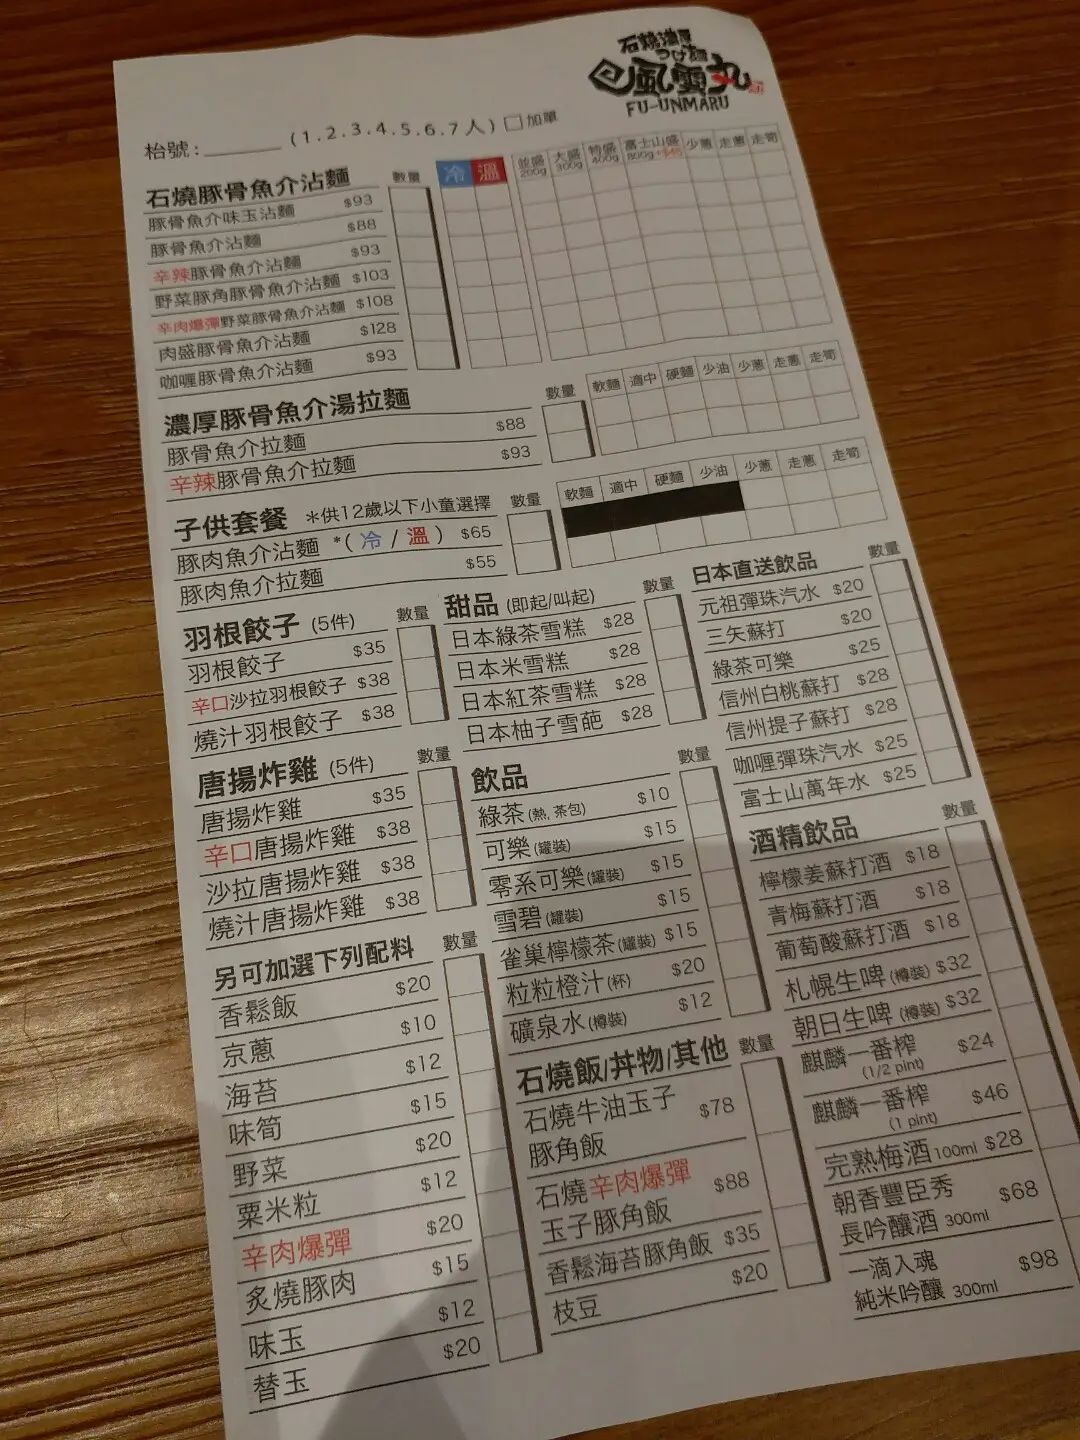 石燒濃厚
つけ麺
風雲丸
FU-UNMARU
枱號: ______ (1.2.3.4.5.6.7人) □加單
石燒豚骨魚介沾麵 數量 冷 溫 並盛 200g 大盛 300g 特盛 400g 富士山盛 800g+$45 少蔥 走蔥 走筍
豚骨魚介味玉沾麵 $93
豚骨魚介沾麵 $88
辛辣豚骨魚介沾麵 $93
野菜豚角豚骨魚介沾麵 $103
辛肉爆彈野菜豚骨魚介沾麵 $108
肉盛豚骨魚介沾麵 $128
咖喱豚骨魚介沾麵 $93
濃厚豚骨魚介湯拉麵 數量 軟麵 適中 硬麵 少油 少蔥 走蔥 走筍
豚骨魚介拉麵 $88
辛辣豚骨魚介拉麵 $93
子供套餐 *供12歲以下小童選擇 數量 軟麵 適中 硬麵 少油 少蔥 走蔥 走筍
豚肉魚介沾麵 *( 冷 / 溫 ) $65
豚肉魚介拉麵 $55
羽根餃子 (5件) 數量
羽根餃子 $35
辛口沙拉羽根餃子 $38
燒汁羽根餃子 $38
唐揚炸雞 (5件) 數量
唐揚炸雞 $35
辛口唐揚炸雞 $38
沙拉唐揚炸雞 $38
燒汁唐揚炸雞 $38
另可加選下列配料 數量
香鬆飯 $20
京蔥 $10
海苔 $12
味筍 $15
野菜 $20
粟米粒 $12
辛肉爆彈 $20
炙燒豚肉 $15
味玉 $12
替玉 $20
甜品 (即起/叫起) 數量
日本綠茶雪糕 $28
日本米雪糕 $28
日本紅茶雪糕 $28
日本柚子雪葩 $28
飲品 數量
綠茶(熱, 茶包) $10
可樂(罐裝) $15
零系可樂(罐裝) $15
雪碧(罐裝) $15
雀巢檸檬茶(罐裝) $15
粒粒橙汁(杯) $20
礦泉水(樽裝) $12
石燒飯/丼物/其他 數量
石燒牛油玉子
豚角飯 $78
石燒辛肉爆彈
玉子豚角飯 $88
香鬆海苔豚角飯 $35
枝豆 $20
日本直送飲品 數量
元祖彈珠汽水 $20
三矢蘇打 $20
綠茶可樂 $25
信州白桃蘇打 $28
信州提子蘇打 $28
咖喱彈珠汽水 $25
富士山萬年水 $25
酒精飲品 數量
檸檬姜蘇打酒 $18
青梅蘇打酒 $18
葡萄酸蘇打酒 $18
札幌生啤(樽裝) $32
朝日生啤(樽裝) $32
麒麟一番榨
(1/2 pint) $24
麒麟一番榨
(1 pint) $46
完熟梅酒 100ml $28
朝香豐臣秀
長吟釀酒 300ml $68
一滴入魂
純米吟釀 300ml $98